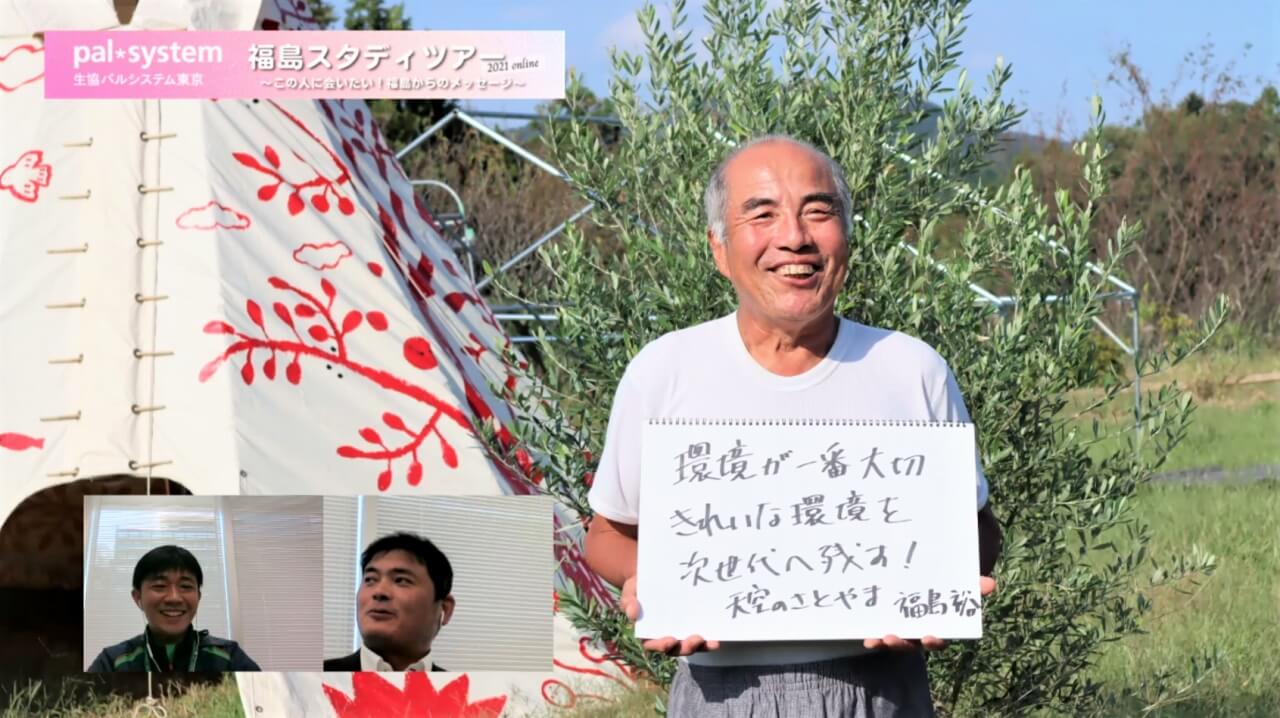 pal*system
生協パルシステム東京
福島スタディツアー
2021 online
～この人に会いたい！福島からのメッセージ～
環境が一番大切
きれいな環境を
次世代へ残す！
天空のさとやま 福島裕